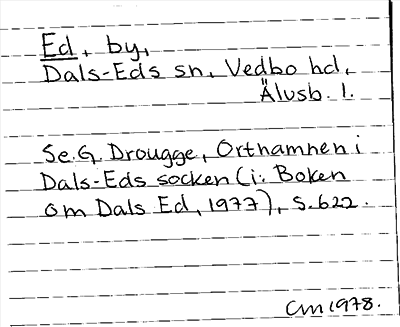 Ed, by,
Dals-Eds sn, Vedbo hd,
Älvsb. l.
Se G. Drougge, Ortnamnen i
Dals-Eds socken (i: Boken
om Dals Ed, 1977), s. 622.
CM 1978.